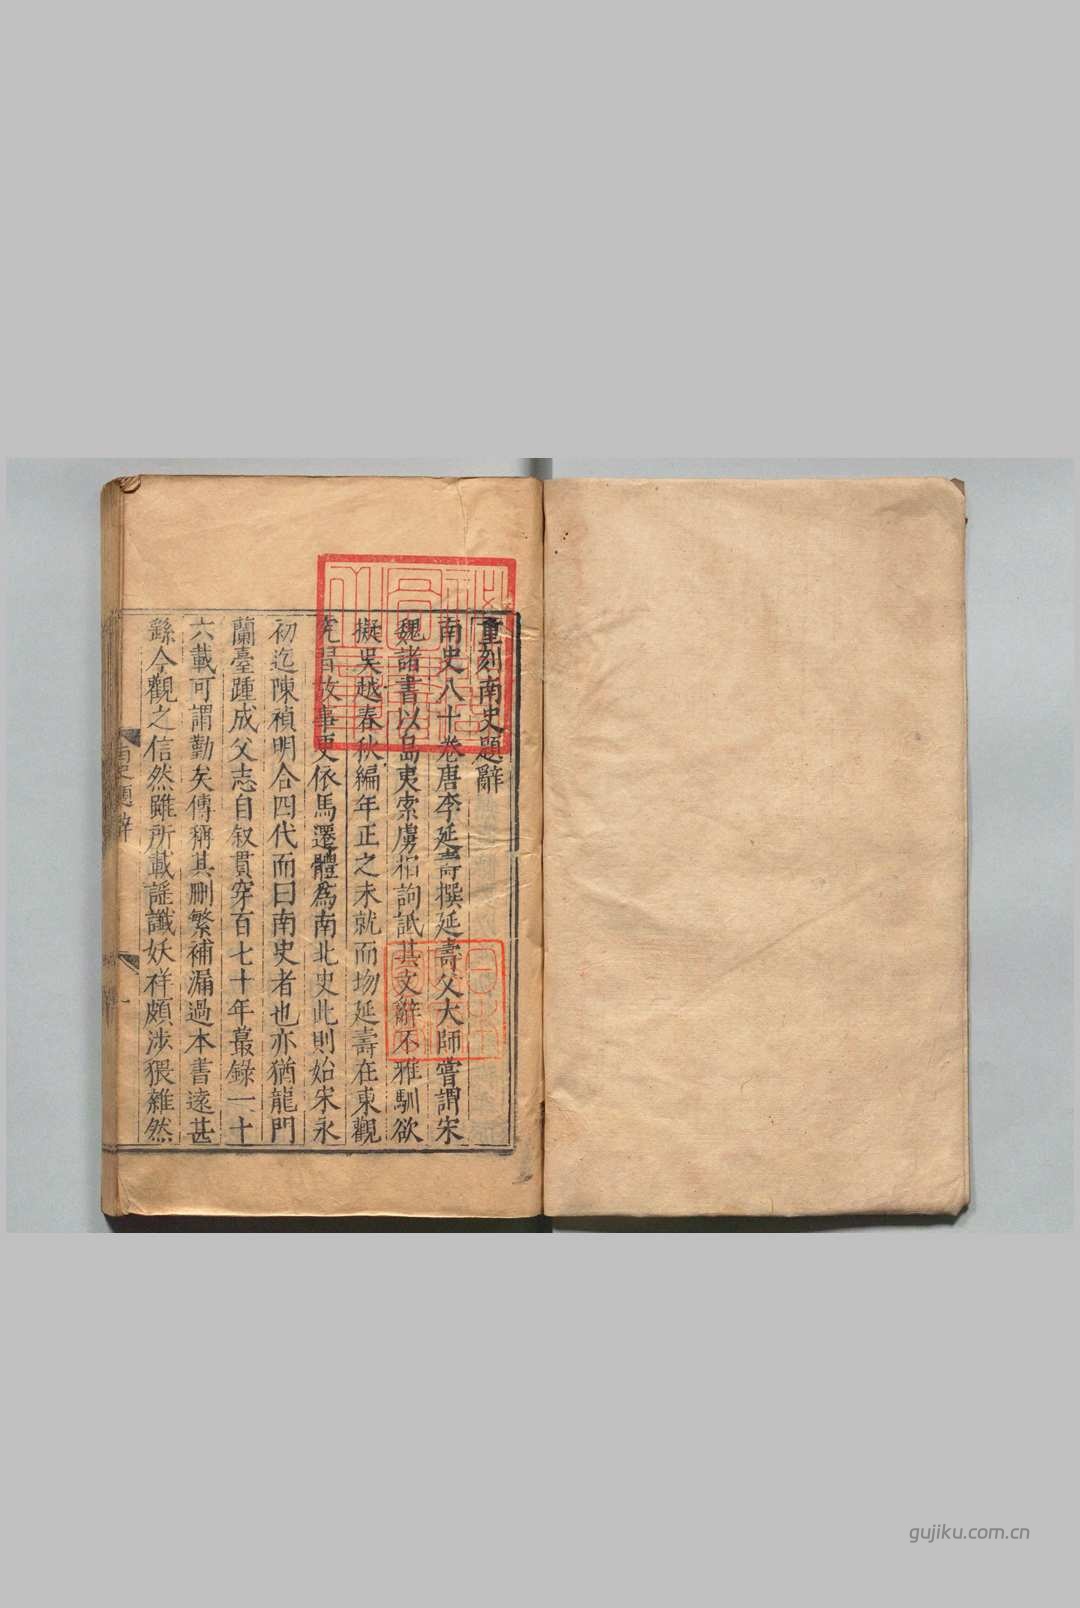 重刻南史題辭
南史八十卷唐李延壽撰延壽父大師嘗謂宋
魏諸書以島夷索虜相詢詆其文辭不雅馴欲
擬吳越春秋編年正之未就而歾延壽在東觀
究習故事更依馬遷體為南北史此則始宋永
初迄陳禎明合四代而曰南史者也亦猶龍門
蘭臺踵成父志自叙貫穿百七十年纂錄一十
六載可謂勤矣傳稱其刪繁補漏過本書遠甚
繇今觀之信然雖所載謠讖妖祥頗涉猥雜然
南史題辭
一
gujiku.com.cn